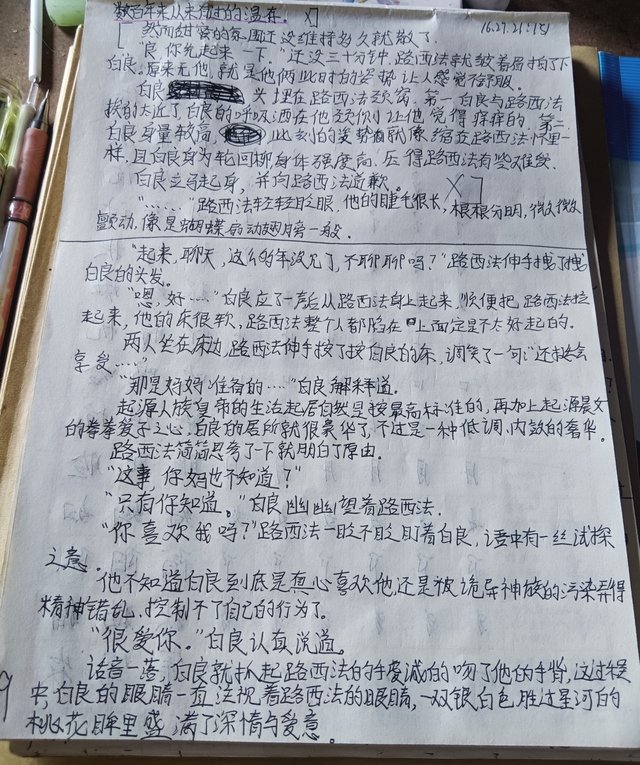 数百年来从未有过的温存。 X]
16.21.21:15)
[ 然而甜蜜的氛围还没维持多久就散了
“良,你先起来一下。”还没三十分钟,路西法就皱着眉拍了下
白良。原来无他,就是他俩此时的姿势让人感觉不舒服。
白良 头埋在路西法颈窝,第一白良与路西法
挨的太近了,白良的呼吸洒在他颈侧让他觉得痒痒的,第二
白良身量较高, 此刻的姿势有就像缩在路西法怀里一
样,且白良身为轮回卵身体强度高,压得路西法有些难绶
白良立马起身,并向路西法道歉。 X]
“……”路西法轻轻眨眼,他的睫毛很长,根根分明,微微微
颤动,像是蝴蝶扇动翅膀一般.
“起来,聊天,这么多年没见了,不聊聊吗?”路西法伸手拽了拽
白良的头发。
“嗯,好……”白良应了一声后从路西法身上起来,顺便把路西法拉
起来,他的床很软,路西法整个人都陷在 上面定是不太好起的.
两人坐在床边,路西法伸手按了按白良的床,调笑了一句:“还挺会
享受……”
“那是好妈准备的……”白良解释道.
起源人族皇帝的生活起居自然是按最高标准的,再加上起源晨女
的拳拳爱子之心,白良的居所就很豪华了,不过是一种低调、内敛的奢华.
路西法简简思考了一下就明白了原由.
“这事,你妈也不知道?”
“只有你知道。”白良幽幽望着路西法.
“你喜欢我吗?”路西法一眨不眨盯着白良,语中有一丝试探
之意.
他不知道白良到底是真心喜欢他,还是被诡异神族的污染弄得
精神错乱,控制不了自己的行为了.
“很爱你.”白良认真说道.
话音一落,白良就抓起路西法的手虔诚的吻了他的手背,这过程
中,白良的眼睛一直注视着路西法的眼睛,一双银白色胜过星河的
桃花眸里盛满了深情与爱意.
9